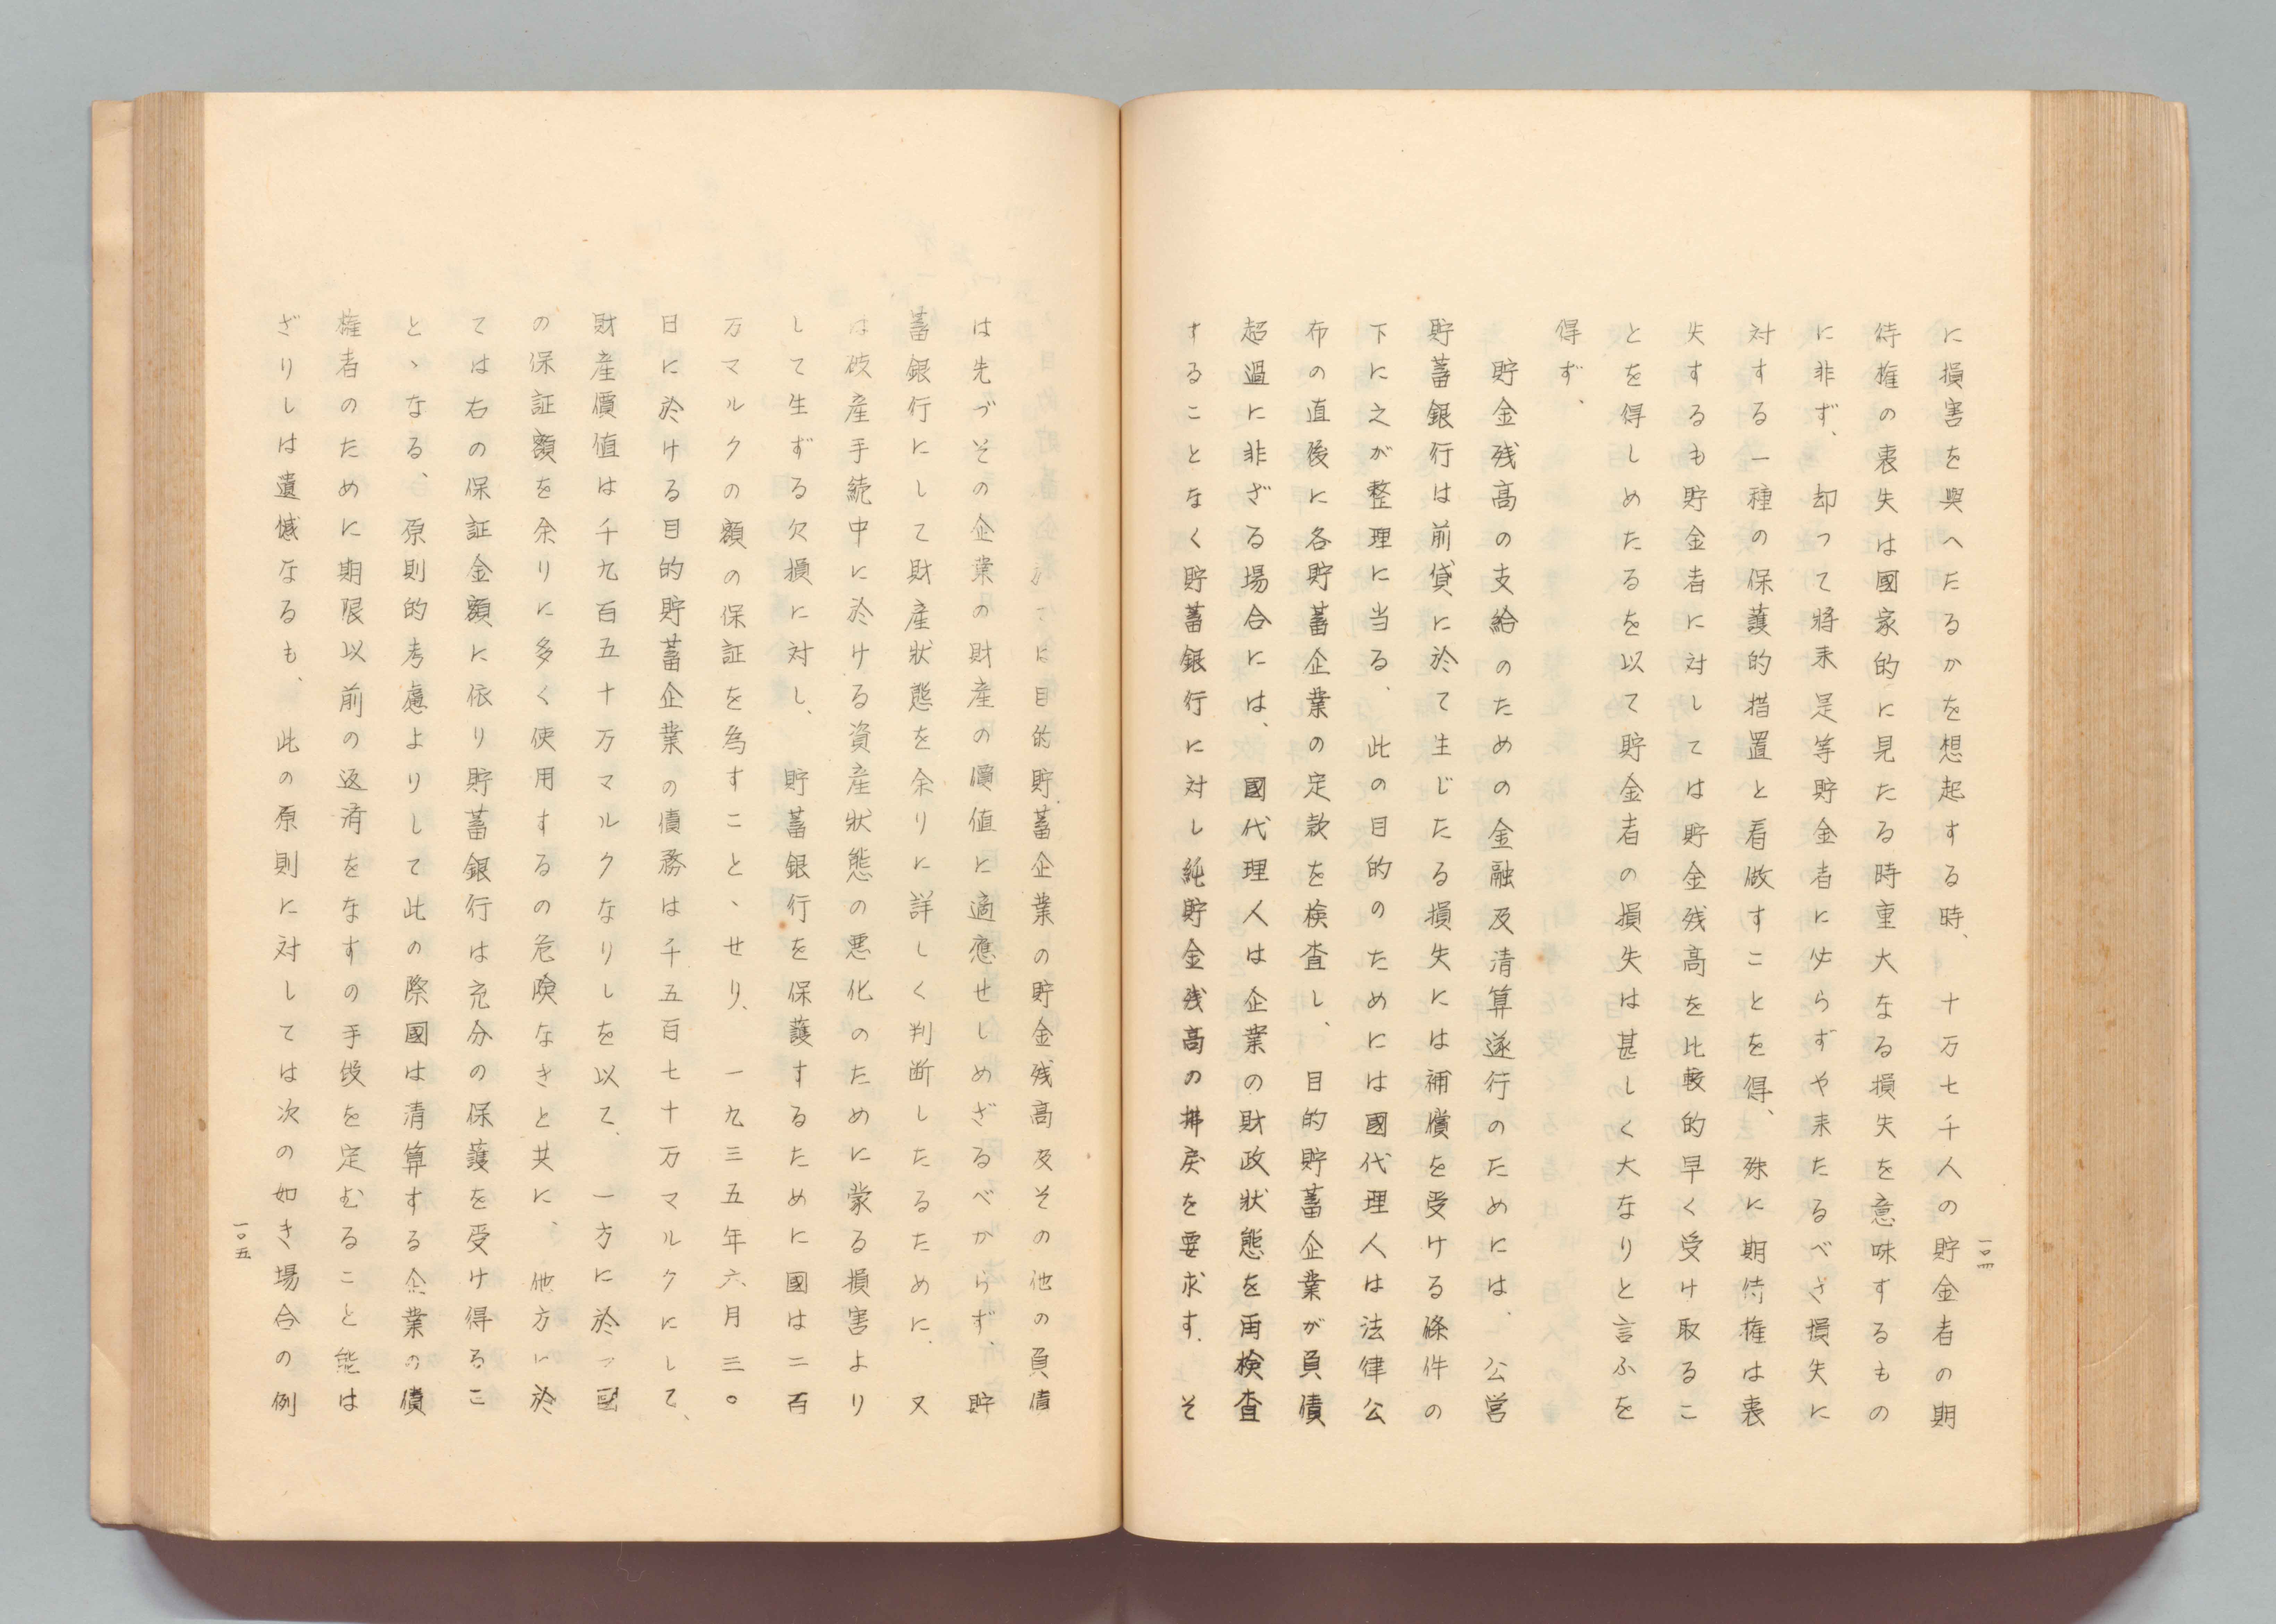 に損害を與へたるかを想起する時、十万七千人の貯金者の期
待権の喪失は國家的に見たる時重大なる損失を意味するもの
に非ず、却つて將来是等貯金者に必らずや来たるべき損失に
対する一種の保護的措置と看做すことを得、殊に期待権は喪
失するも貯金者に対しては貯金残高を比較的早く受け取るこ
とを得しめたるを以て貯金者の損失は甚しく大なりと言ふを
得ず、
貯金残高の支給のための金融及清算遂行のためには、公営
貯蓄銀行は前貸に於て生じたる損失には補償を受ける條件の
下に之が整理に当る、此の目的のためには國代理人は法律公
布の直後に各貯蓄企業の定款を検査し、目的貯蓄企業が負債
超過に非ざる場合には、國代理人は企業の財政状態を再検査
することなく貯蓄銀行に対し純貯金残高の拂戻を要求す、そ
一〇四
は目的貯蓄企業の貯金残高及その他の負債
は先づその企業の財産の價値に適應せしめざるべからず、貯
蓄銀行にして財産狀態を余りに詳しく判断したるために、又
は破産手続中に於ける資産狀態の悪化のために蒙る損害より
して生ずる欠損に対し、貯蓄銀行を保護するために國は二百
万マルクの額の保証を為すこと、せり、一九三五年六月三〇
日に於ける目的貯蓄企業の債務は千五百七十万マルクにして、
財産價値は千九百五十万マルクなりしを以て、一方に於て國
の保証額を余りに多く使用するの危険なきと共に、他方に於
ては右の保証金額に依り貯蓄銀行は充分の保護を受け得るこ
とゝなる、原則的考慮よりして此の際國は清算する企業の債
権者のために期限以前の返済をなすの手段を定むること能は
ざりしは遺憾なるも、此の原則に対しては次の如き場合の例
一〇五